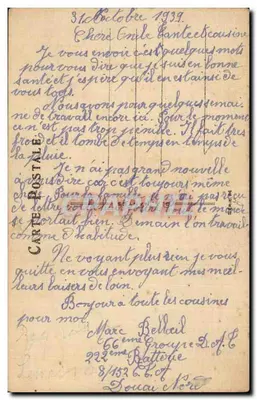 31 Octobre 1939.
Chers Oncle Tante et cousine
Je vous envoie c'est quelques mots
pour vous dire que je suis en bonne
santé et j'espère qu'il en est ainsi de
vous tous.
Nous avons pour quelques semai
ne de travail encore ici. Pour le moment
c'n'est pas trop pénible. Il fait très
froid et il tombe de temps en temps de
la pluie.
Je n'ai pas grand nouvelle
à vous dire car c'est toujours même
de lettre
se portait bien. Demain l'on travail
comme d'habitude.
Ne voyant plus rien je vous
quitte en vous envoyant mes meil
leurs baisers de loin.
Bonjour à toute les cousines
pour moi
Marc Belleil
66eme Groupe D.A.T
222eme Batterie
Douai Nord
CARTE POSTALE
CPAPHIL